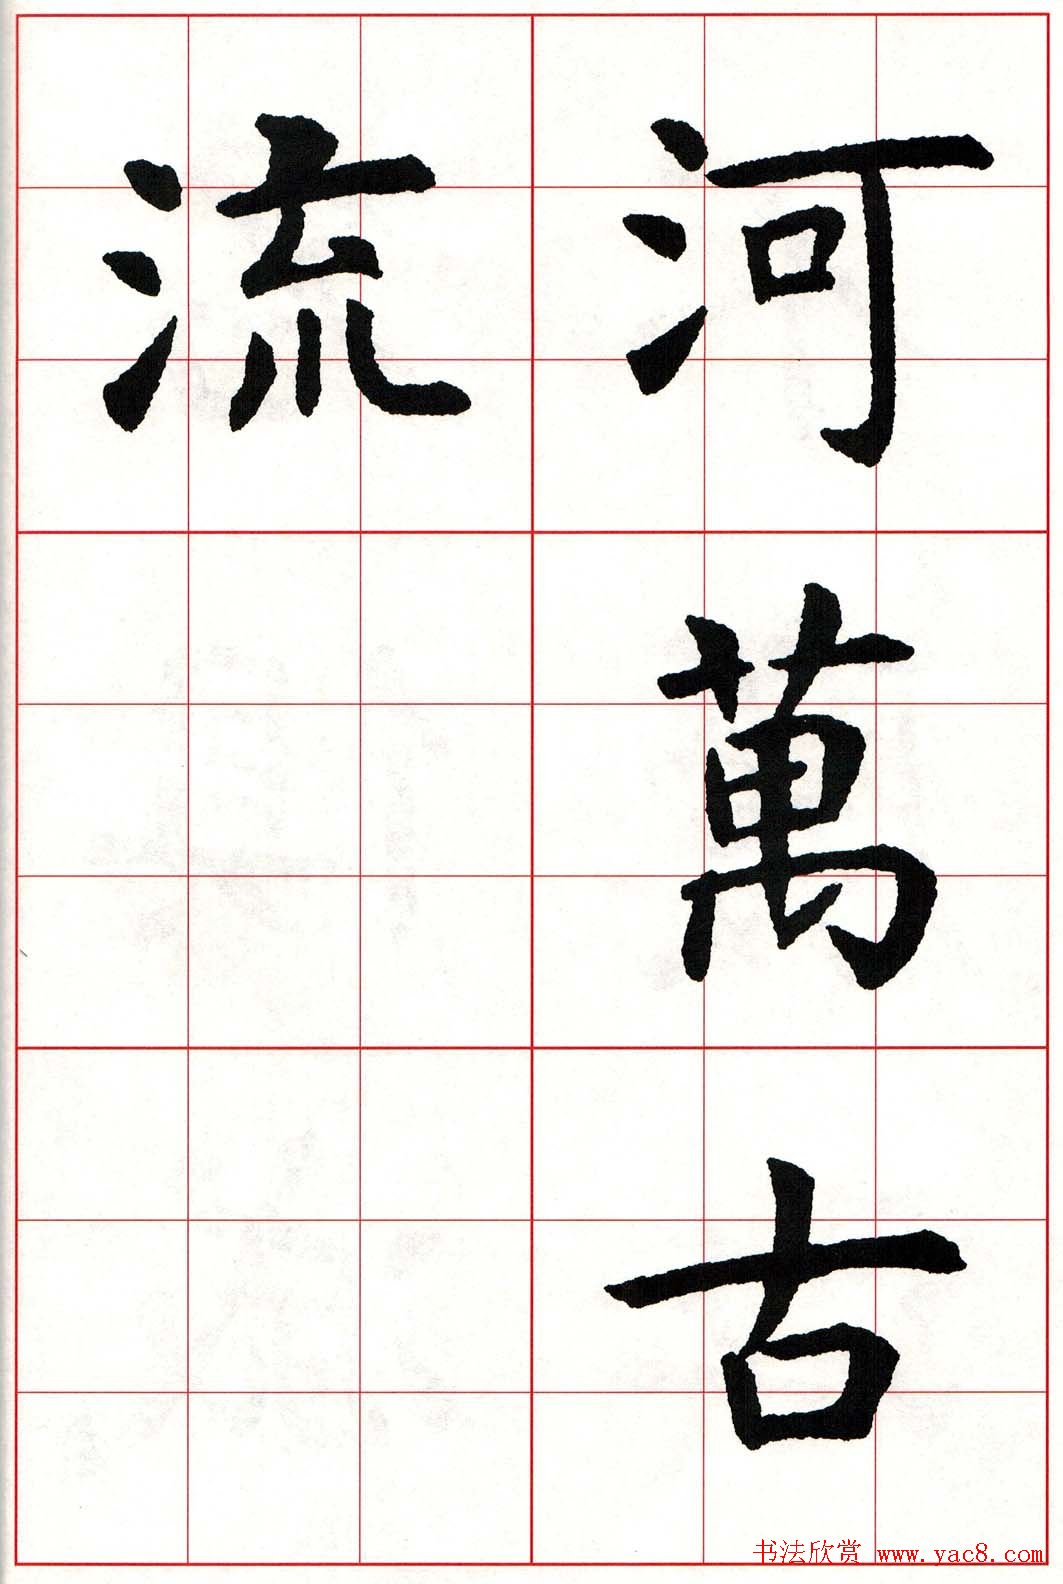 河萬古
流
书法欣赏 www.yac8.com